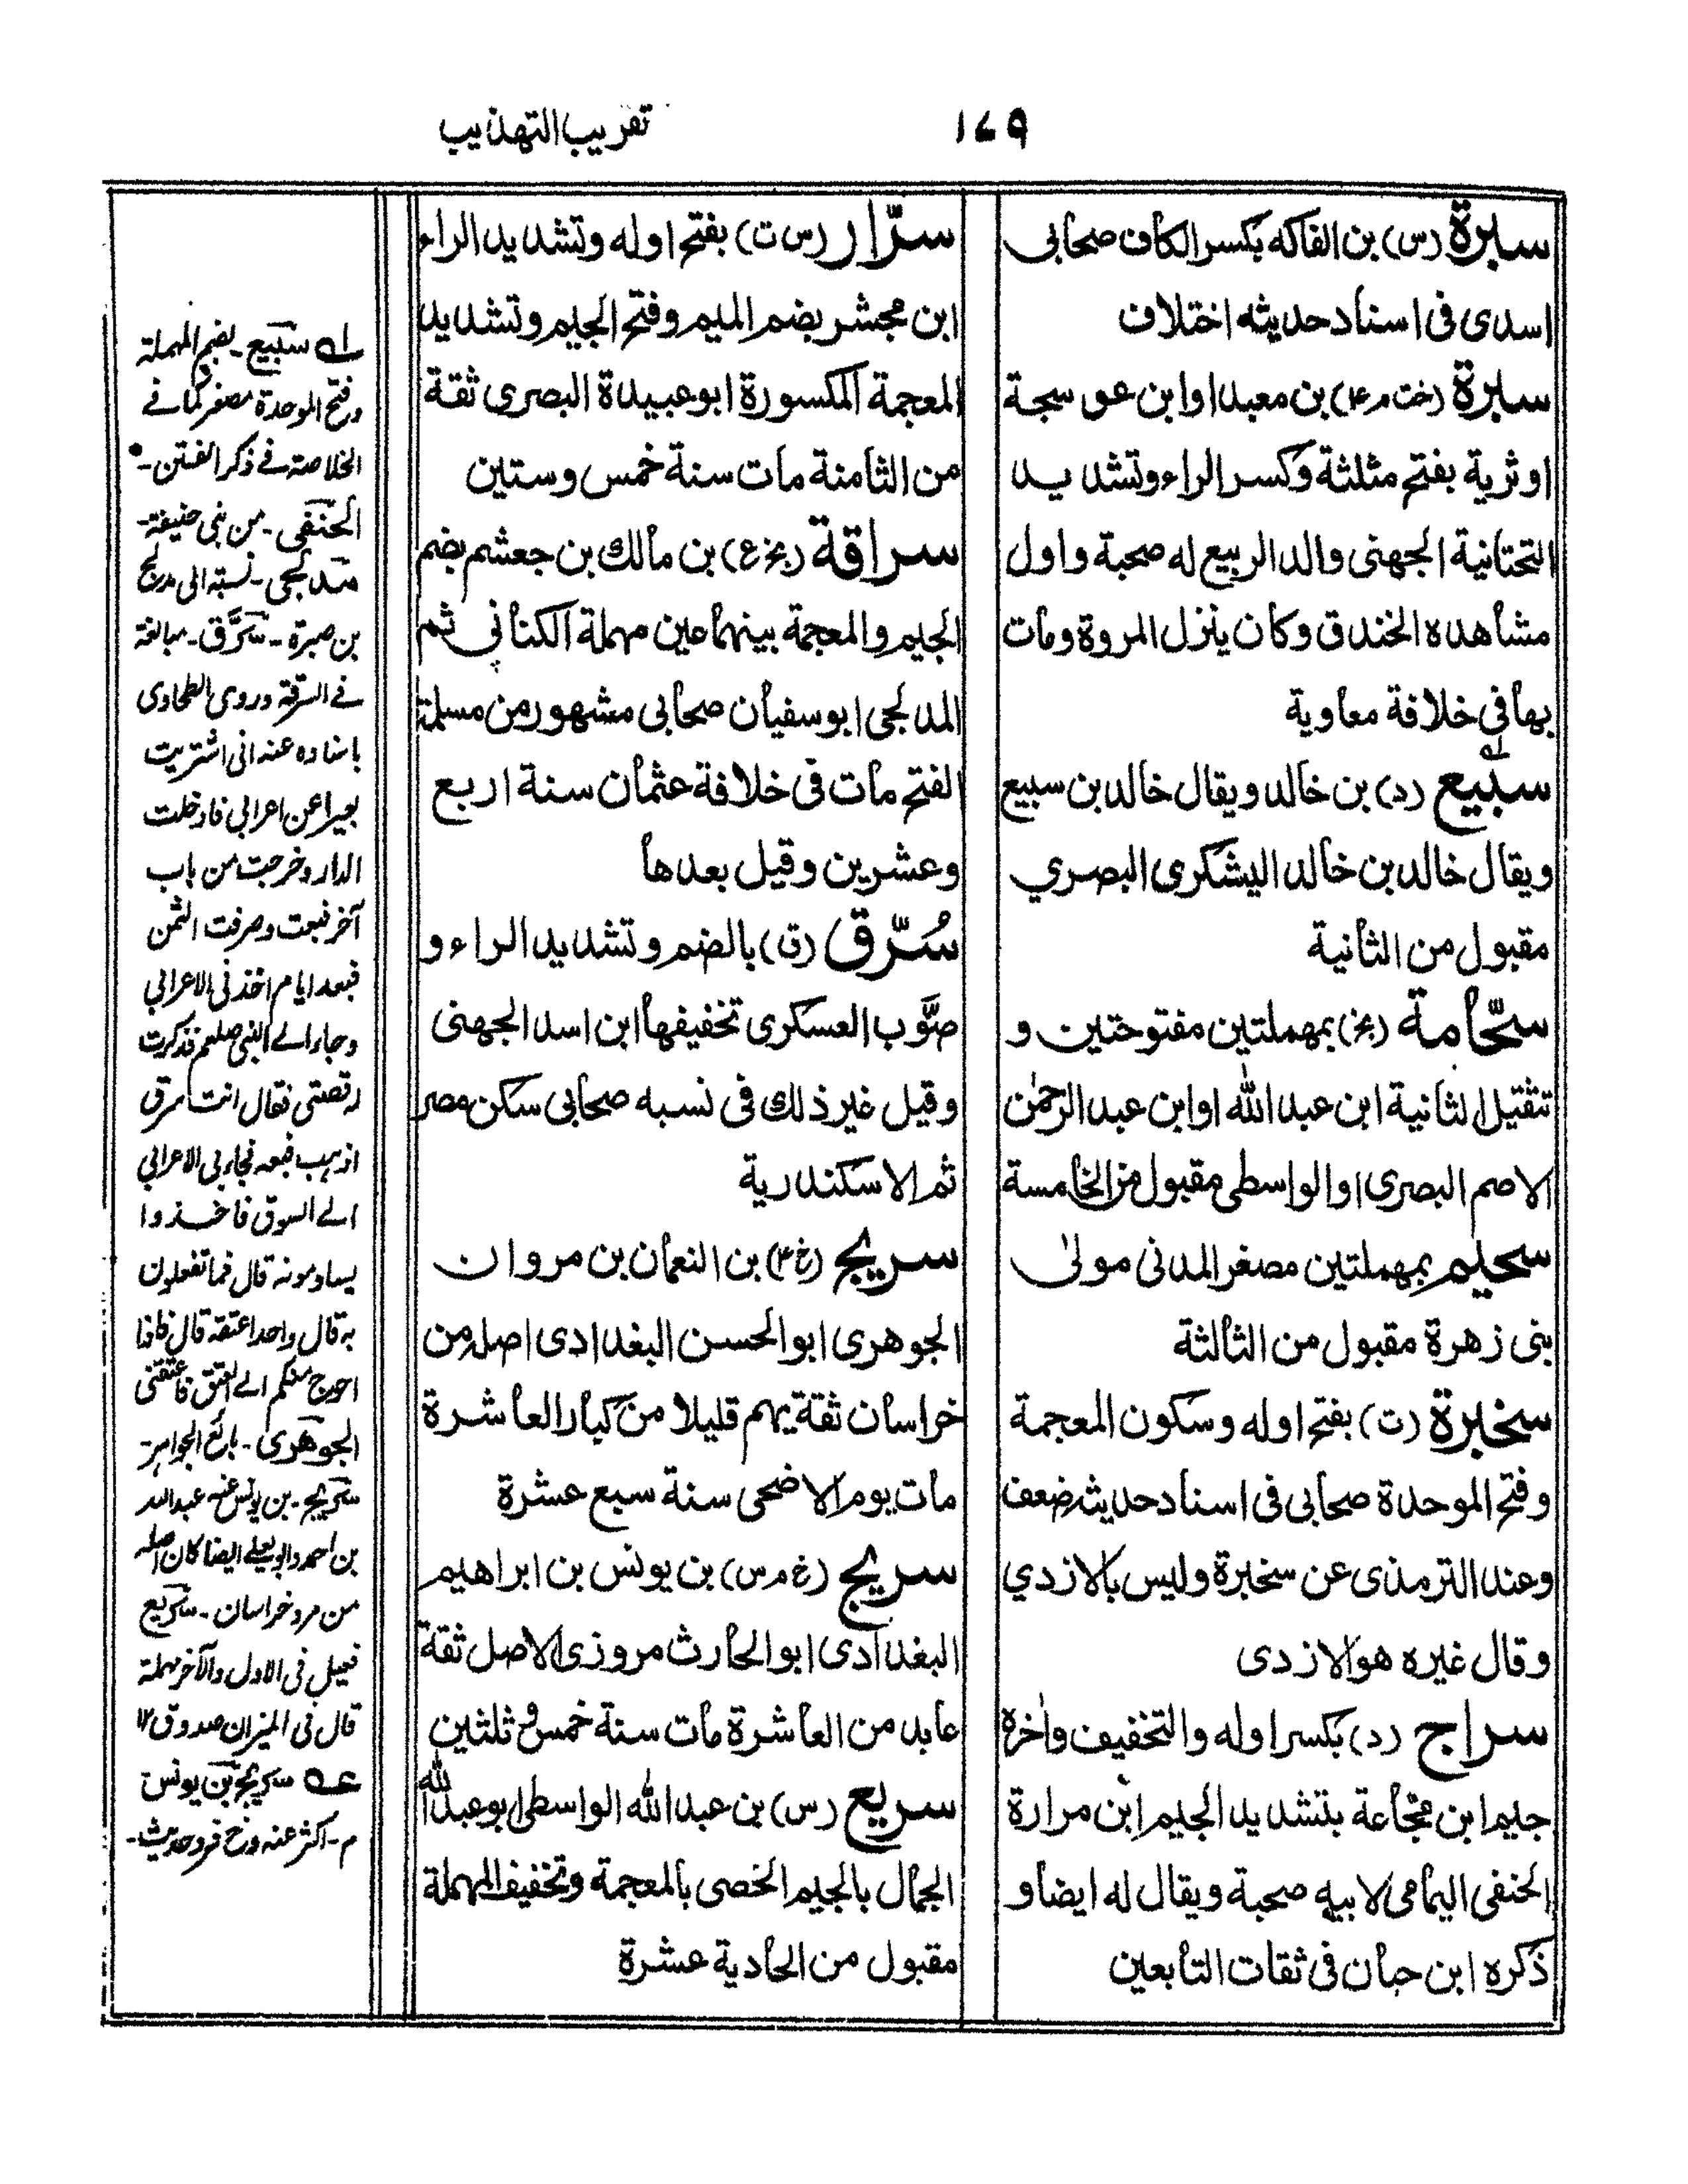 ١٧٩
تقريب التهذيب
سبرة (س) بن الفاكه بكسر الكاف صحابى
اسدى فى اسناد حديثه اختلاف
سبرة (خت م ۴) بن معبد اوابن عوسجة
او ثرية بفتح مثلثة وكسر الراء وتشديد
التحتانية الجهنى والد الربيع له صحبة واول
مشاهده الخندق وكان ينزل المروة ومات
بها فى خلافة معاوية
سبيع (د) بن خالد ويقال خالد بن سبيع
ويقال خالد بن خالد اليشكرى البصري
مقبول من الثانية
سحّامة (بخ) بمهملتين مفتوحتين و
تثقيل الثانية ابن عبد الله اوابن عبد الرحمٰن
الاصم البصرى او الواسطى مقبول من الخامسة
سحيم بمهملتين مصغر المدنى مولى
بنى زهرة مقبول من الثالثة
سخبرة (ت) بفتح اوله وسكون المعجمة
وفتح الموحدة صحابى فى اسناد حديثه ضعف
وعند الترمذى عن سخبرة وليس بالازدي
وقال غيره هو الازدى
سراج (د) بكسر اوله والتخفيف واخره
جيم ابن مجّاعة بتشديد الجيم ابن مرارة
الحنفى اليمامى لابيه صحبة ويقال له ايضا و
ذكره ابن حبان فى ثقات التابعين
سرّار (س ت) بفتح اوله وتشديد الراء
ابن مجشر بضم الميم وفتح الجيم وتشديد
المعجمة المكسورة ابو عبيدة البصرى ثقة
من الثامنة مات سنة خمس وستين
سراقة (بخ ع) بن مالك بن جعشم بضم
الجيم والمعجمة بينهما عين مهملة الكنانى ثم
المدلجى ابو سفيان صحابى مشهور من مسلمة
الفتح مات فى خلافة عثمان سنة اربع
وعشرين وقيل بعدها
سُرّق (ق) بالضم وتشديد الراء و
صوَّب العسكرى تخفيفها ابن اسد الجهنى
وقيل غير ذلك فى نسبه صحابى سكن مصر
ثم الاسكندرية
سريج (خ ۴) بن النعمان بن مروان
الجوهرى ابو الحسن البغدادى اصله من
خراسان ثقة يهم قليلا من كبار العاشرة
مات يوم الاضحى سنة سبع عشرة
سريج (خ م س) بن يونس بن ابراهيم
البغدادى ابو الحارث مروزى الاصل ثقة
عابد من العاشرة مات سنة خمس و ثلثين
سريع (س) بن عبد الله الواسطى ابو عبد الله
الجمال بالجيم الخصى بالمعجمة وتخفيف المهملة
مقبول من الحادية عشرة
له سبيع ـ بضم المهملة
وفتح الموحدة مصغر كما في
الخلاصة في ذكر الفتن ـ
الحنفى ـ من بنى حنيفة ـ
مدلجى ـ نسبة الى مدلج
بن ـ سرَّق ـ مبالغة
في السرقة وروى الطحاوى
باسناده عنه انى اشتريت
بعيرا عن اعرابى فادخلت
الدار وخرجت من باب
آخر فبعت وصرفت الثمن
فبعد ايام اخذنى الاعرابى
وجاء الے النبى صلعم فذكرت
له قصتى فقال انت سرق
اذهب فبعه فجاء بى الاعرابى
الے السوق فاخذوا
يساومونه قال فما تفعلون
به قال واحد اعتقه قال فانا
احوج منكم الے العتق فاعتقنى
الجوهرى ـ بائع الجواهر ـ
سريج ـ بن يونس عنه عبد الله
بن احمد وابو يعلے ايضا كان اصله
من مرو خراسان ـ سريع
فعيل فى الاول والآخر مهملة
قال فى الميزان صدوق ١٢
عه سريج بن يونس
م ـ اكثر عنه وخ فرد حديث ـ